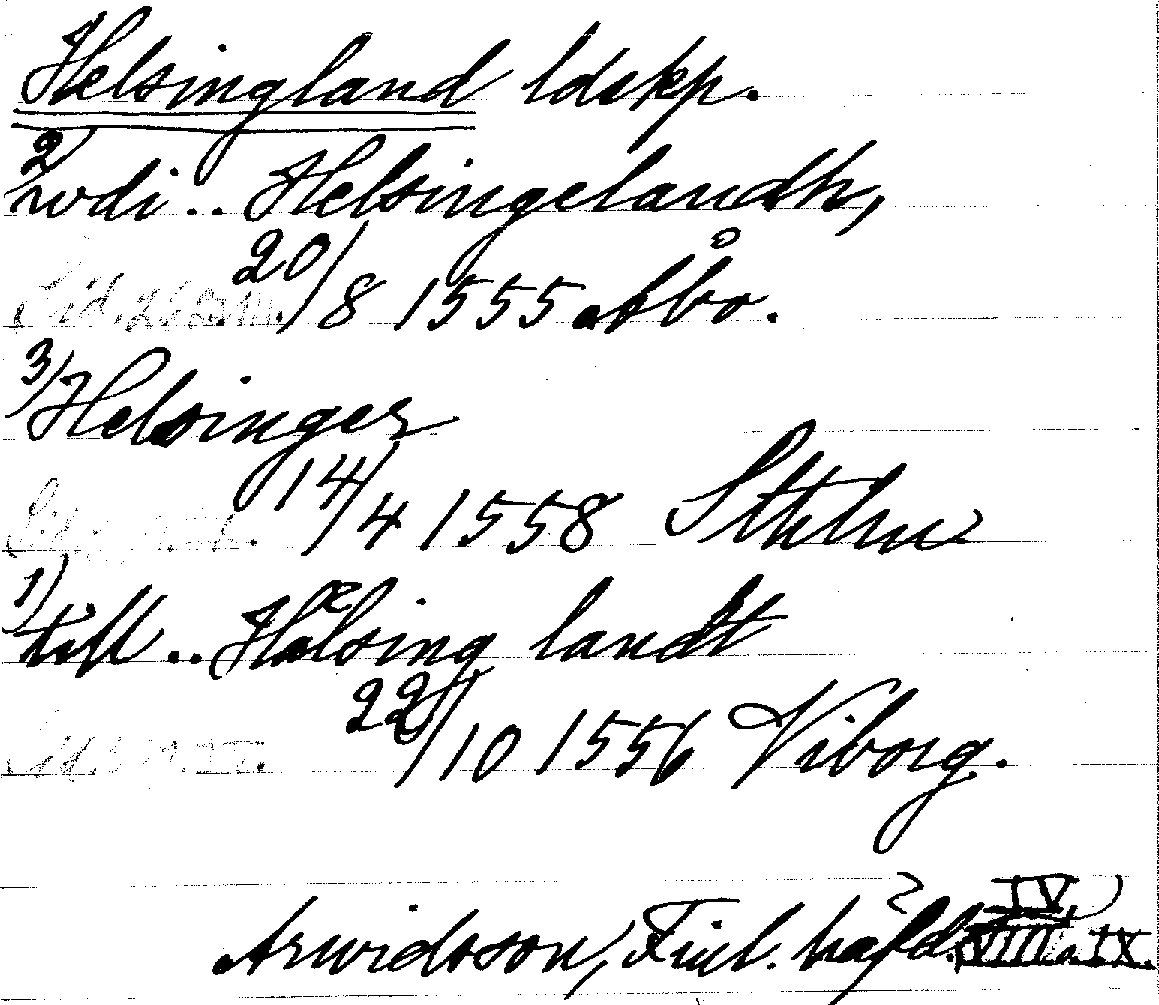 Helsingland ldskp.
2/ wdi .. Helsingelandh,
20/8 1555 Åbo.
3/ Helsinger
14/4 1558 Sthlm
1/ till .. Hælsing landt
22/10 1556 Viborg.
Arwidsson, Finl. häfd. IV,